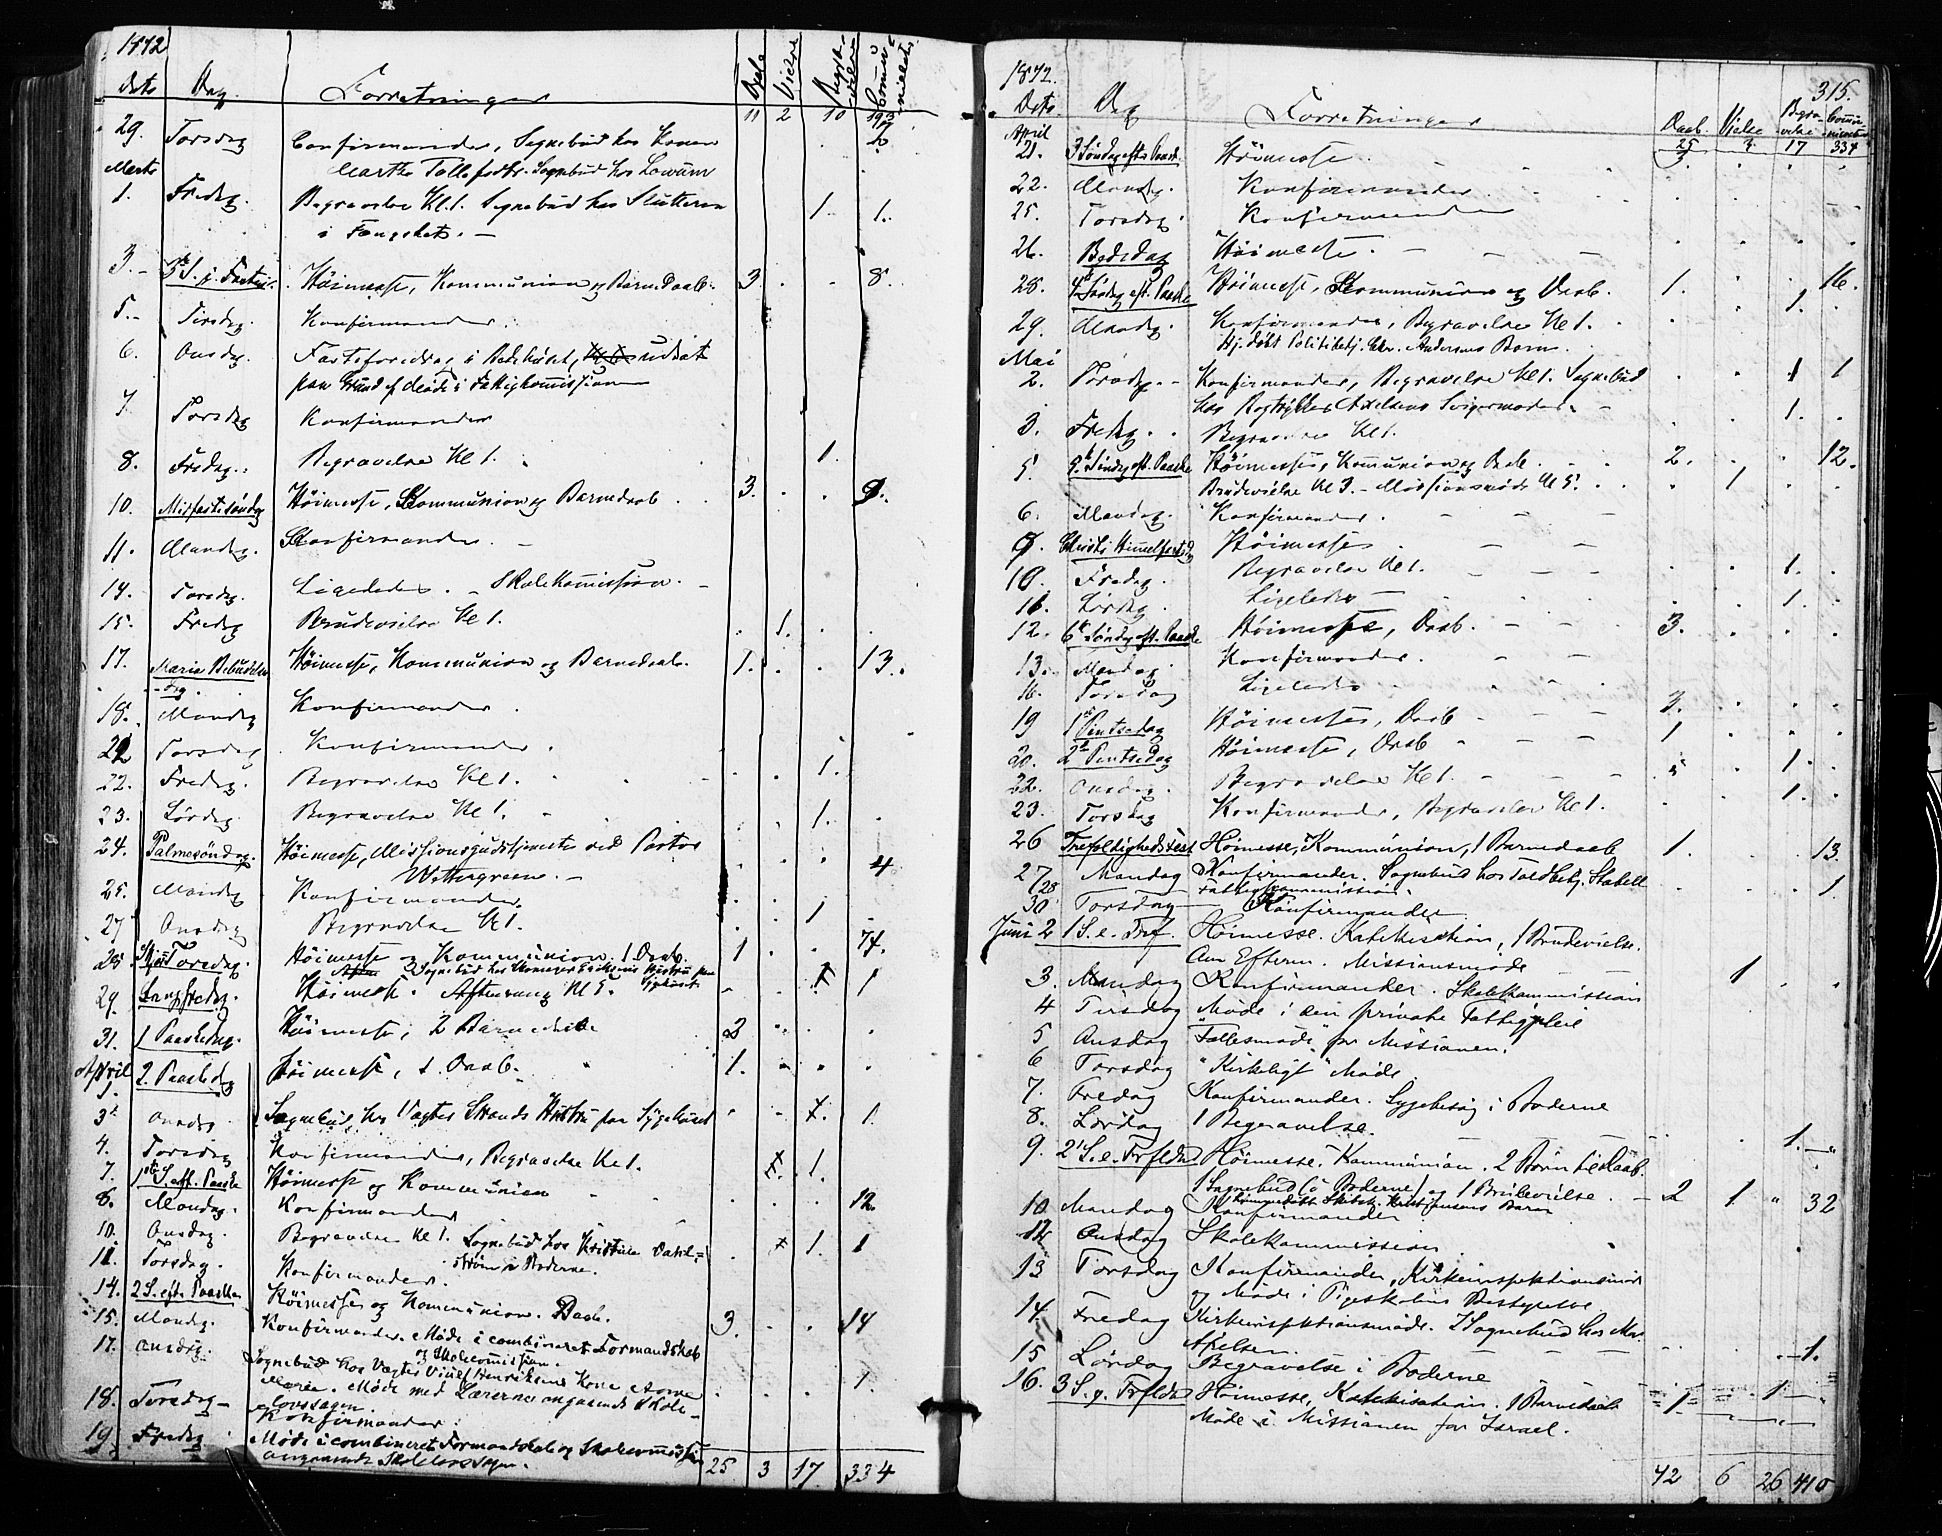 1872
Dato Dag. Forretninger Daab Vielse Begravelse Communicanter
11 2 10 193
29. Torsdag Confirmander, Sognebud hos Konen 2
Marthe Tollefsdtr. Sognebud hos
Marts
1. Fredag. Begravelse Kl. 1. Sognebud hos Slutteren 1. 1.
i Fængslet. —
3. – 3die S. i Fasten. Høimesse, Kommunion og Barnedaab. 3. . . 8.
5. – Tirsdag. Konfirmander.
6. Onsdag. Fasteforedrag i Bedehuset, udsat
paa Grund af Møde i Fattigkommissionen
7. Torsdag Konfirmander
8. Fredag. Begravelse Kl 1. 1.
10. Midfastesøndag Høimesse, Kommunion og Barnedaab 3. . . 9.
11. Mandag. Konfirmander. –
14. Torsdag. Ligeledes. – Skolekommission. –
15. Fredag Brudevielse Kl 1. . 1. . .
17. Maria Bebudelses Høimesse, Kommunion og Barnedaab. 1. . . 13.
dag.
18. Mandag Konfirmander
21 Torsdag Konfirmander.
22. Fredag. Begravelse Kl 1. . . 1.
23. Lørdag. Begravelse Kl 1. . . 1.
24. Palmesøndag. Høimesse, Missionsgudstjeneste ved Pastor . . . 4
Wettergreen. –
25. Mandag Konfirmander
27 Onsdag Begravelse Kl 1. 1
28 Skjærtorsdag. Høimesse og Kommunion. 1 Daab. 1 . . 74.
Sognebud hos Hustru paa
Sygehuset
29. Langfredag. Høimesse. Aftensang Kl 5. 1
31. 1 Paaskedag. Høimesse, 2 Barnedaab 2
April
1. 2. Paaskedag Høimesse, 1. Daab. 1.
3. Onsdag Sognebud hos Vægter Strands Hustru paa Sygehuset 1.
4. Torsdag Konfirmander, Begravelse Kl 1. 1.
7. 1ste S. eft. Paaske Høimesse og Kommunion 12.
8. Mandag. Konfirmander
10. Onsdag. Begravelse Kl 1. Sognebud hos Kristine Dahl= 1. 1
strøm i Boderne.
11. Torsdag. Konfirmander.
14. 2 S. efter Paaske Høimesse og Kommunion. Daab. 3. . . 14
15. Mandag. Konfirmander. Møde i combineret Formandskab
og Skolecommission.
17. Onsdag. Sognebud hos Vægter Henriksens Kone Anne 1.
Marie. Møde med Lærerne angaaende Skole-
lovssagen.
18. Torsdag – Konfirmander
19 Fredag Møde i combineret Formandskab og Skolecommission
angaaende Skolelovssagen.
25 3 17 334
1872. 315.
Dato Dag Forretninger Daab. Vielse Begravelse Communicanter
25 3 17 334
April
21. 3 Søndag efter Paaske Høimesse 3. . . .
22. Mandag. Konfirmander
25. Torsdag. Konfirmander
26. Bededag Høimesse. — — —
28. 4 Søndag eft. Paaske Høimesse, Kommunion og Daab. 1. . . 16.
29. Mandag. Konfirmander, Begravelse Kl 1. 1.
Hj.døbt Politibetj. Chr. Andersens Barn
Mai
2. Torsdag. – Konfirmander, Begravelse Kl 1. Sognebud . . 1 1
hos Bogtrykker Axelsens Svigermoder. –
3. Fredag. Begravelse Kl 1. 1.
5. 5te Søndag eft. Paaske Høimesse, Kommunion og Daab. 2. . . 12.
Brudevielse Kl 3. – Missionsmøde Kl 5. 1
6. Mandag. Konfirmander. — —
9. Christi Himmelfartsdag Høimesse — —
10. Fredag. Begravelse Kl 1. 1.
11. Lørdag. Ligeledes — 1.
12. 6te Søndag eft. Paaske Høimesse, Daab. — — 3. . . .
13. Mandag. Konfirmander.
16. Torsdag Ligeledes
19 1ste Pintsedag Høimesse, Daab 3. . . .
20. 2den Pintsedag Høimesse, Daab 1 . . .
22. Onsdag. Begravelse Kl 1. 1.
23. Torsdag Konfirmander, Begravelse Kl 1. 1.
26 Trefoldighedsfest Høimesse, Kommunion, 1 Barnedaab 1. . . 13.
27 Mandag Konfirmander. Sognebud hos Toldbetj. Stabell 1
28 Fattigkommission.
30 Torsdag Konfirmander
Juni 2 1 S. e. Tref. Høimesse. Katekisation, 1 Brudevielse.
Om Efterm. Missionsmøde 1
3. Mandag Konfirmander. Skolekommission
4 Tirsdag Møde i den private Fattigpleie
5 Onsdag "Fællesmøde" for Missionen.
6 Torsdag "Kirkeligt" Møde
7. Fredag Konfirmander. Sygebesøg i Boderne
8. Lørdag 1 Begravelse. 1.
9. 2 S. e. Trfldh. Høimesse, Kommunion. 2 Børn til Daab.
1 Sognebud (i Boderne) og 1 Brudevielse. – 2 1 " 32
Hjemmedøbt Kristiansens Barn
10. Mandag Konfirmander
12 Onsdag Skolekommission
13 Torsdag Konfirmander, Kirkeinspektionsmøde
og Møde i Pigeskolens Bestyrelse
14. Fredag Kirkeinspektionsmøde. 1 Sognebud hos Mad.
Axelsen. 1.
15 Lørdag Begravelse i Boderne 1
16. 3 S. e. Trfldh. Høimesse, Katekisation. 1 Barnedaab 1
Møde i Missionen for Israel.
42 6 26 410